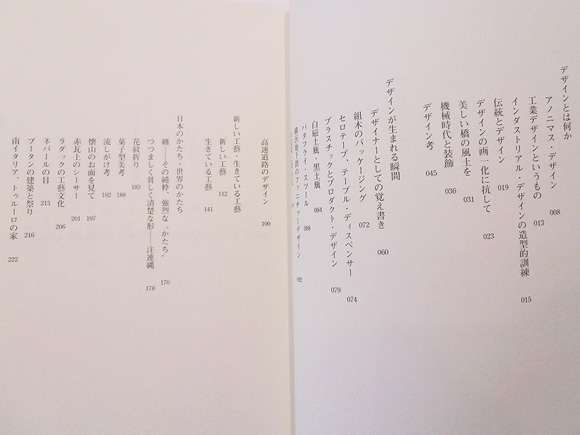 デザインとは何か
アノニマス・デザイン 008
工業デザインというもの 013
インダストリアル・デザインの造型的訓練 015
伝統とデザイン 019
デザインの画一化に抗して 023
美しい橋の風土を 031
機械時代と装飾 036
デザイン考 045
デザインが生まれる瞬間
デザイナーとしての覚え書き 060
組木のパッケージング 072
セロテープ、テーブル・ディスペンサー 074
プラスチックとプロダクト・デザイン 079
白磁土瓶・黒土瓶 084
バタフライ・スツール 088
高速道路のデザイン 100
新しい工藝・生きている工藝
新しい工藝 132
生きている工藝 141
日本のかたち・世界のかたち
纏——その純粋、強烈な“かたち” 170
つつましく貧しく清楚な形——注連縄 178
花紋折り 183
菓子型美考 188
流しがけ考 192
懐山のお面を見て 197
赤瓦上のシーサー 201
ラダックの工藝文化 206
ネパールの目 213
ブータンの建築と祭り 216
南イタリア、トゥルーロの家 222